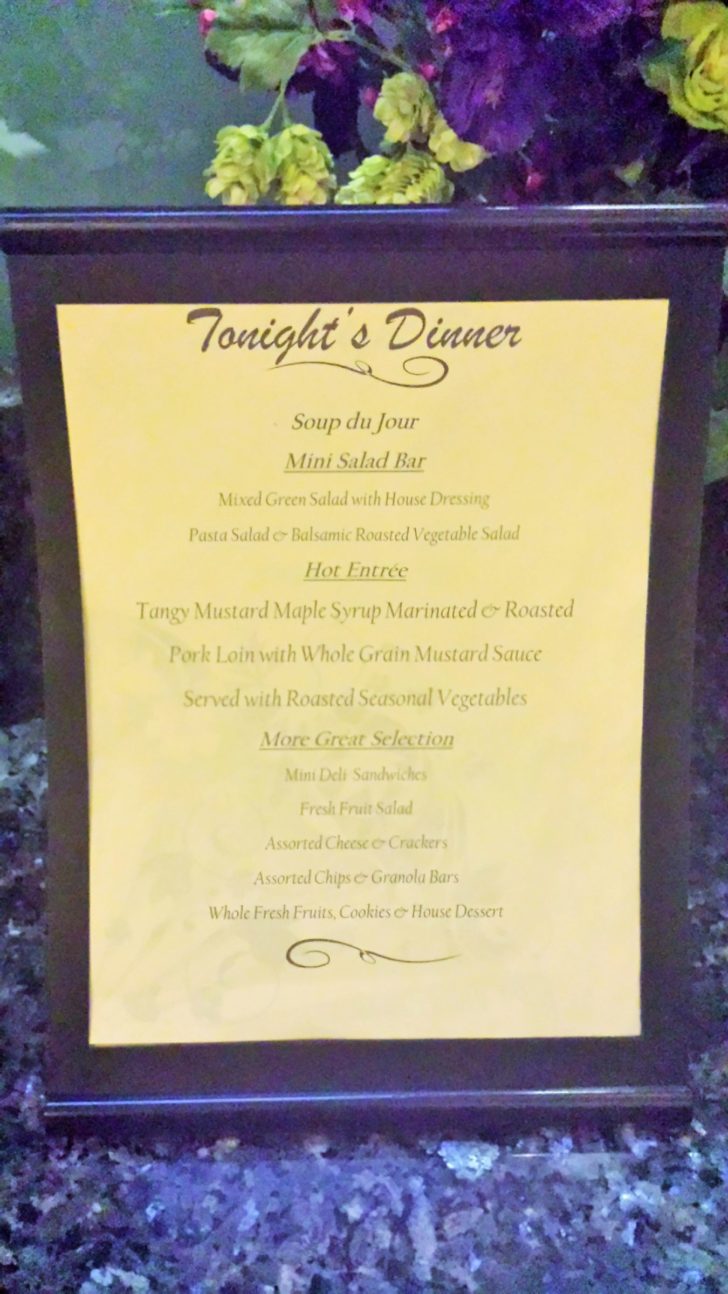 Tonight's Dinner
Soup du Jour
Mini Salad Bar
Mixed Green Salad with House Dressing
Pasta Salad & Balsamic Roasted Vegetable Salad
Hot Entrée
Tangy Mustard Maple Syrup Marinated & Roasted
Pork Loin with Whole Grain Mustard Sauce
Served with Roasted Seasonal Vegetables
More Great Selection
Mini Deli Sandwiches
Fresh Fruit Salad
Assorted Cheese & Crackers
Assorted Chips & Granola Bars
Whole Fresh Fruits, Cookies & House Dessert